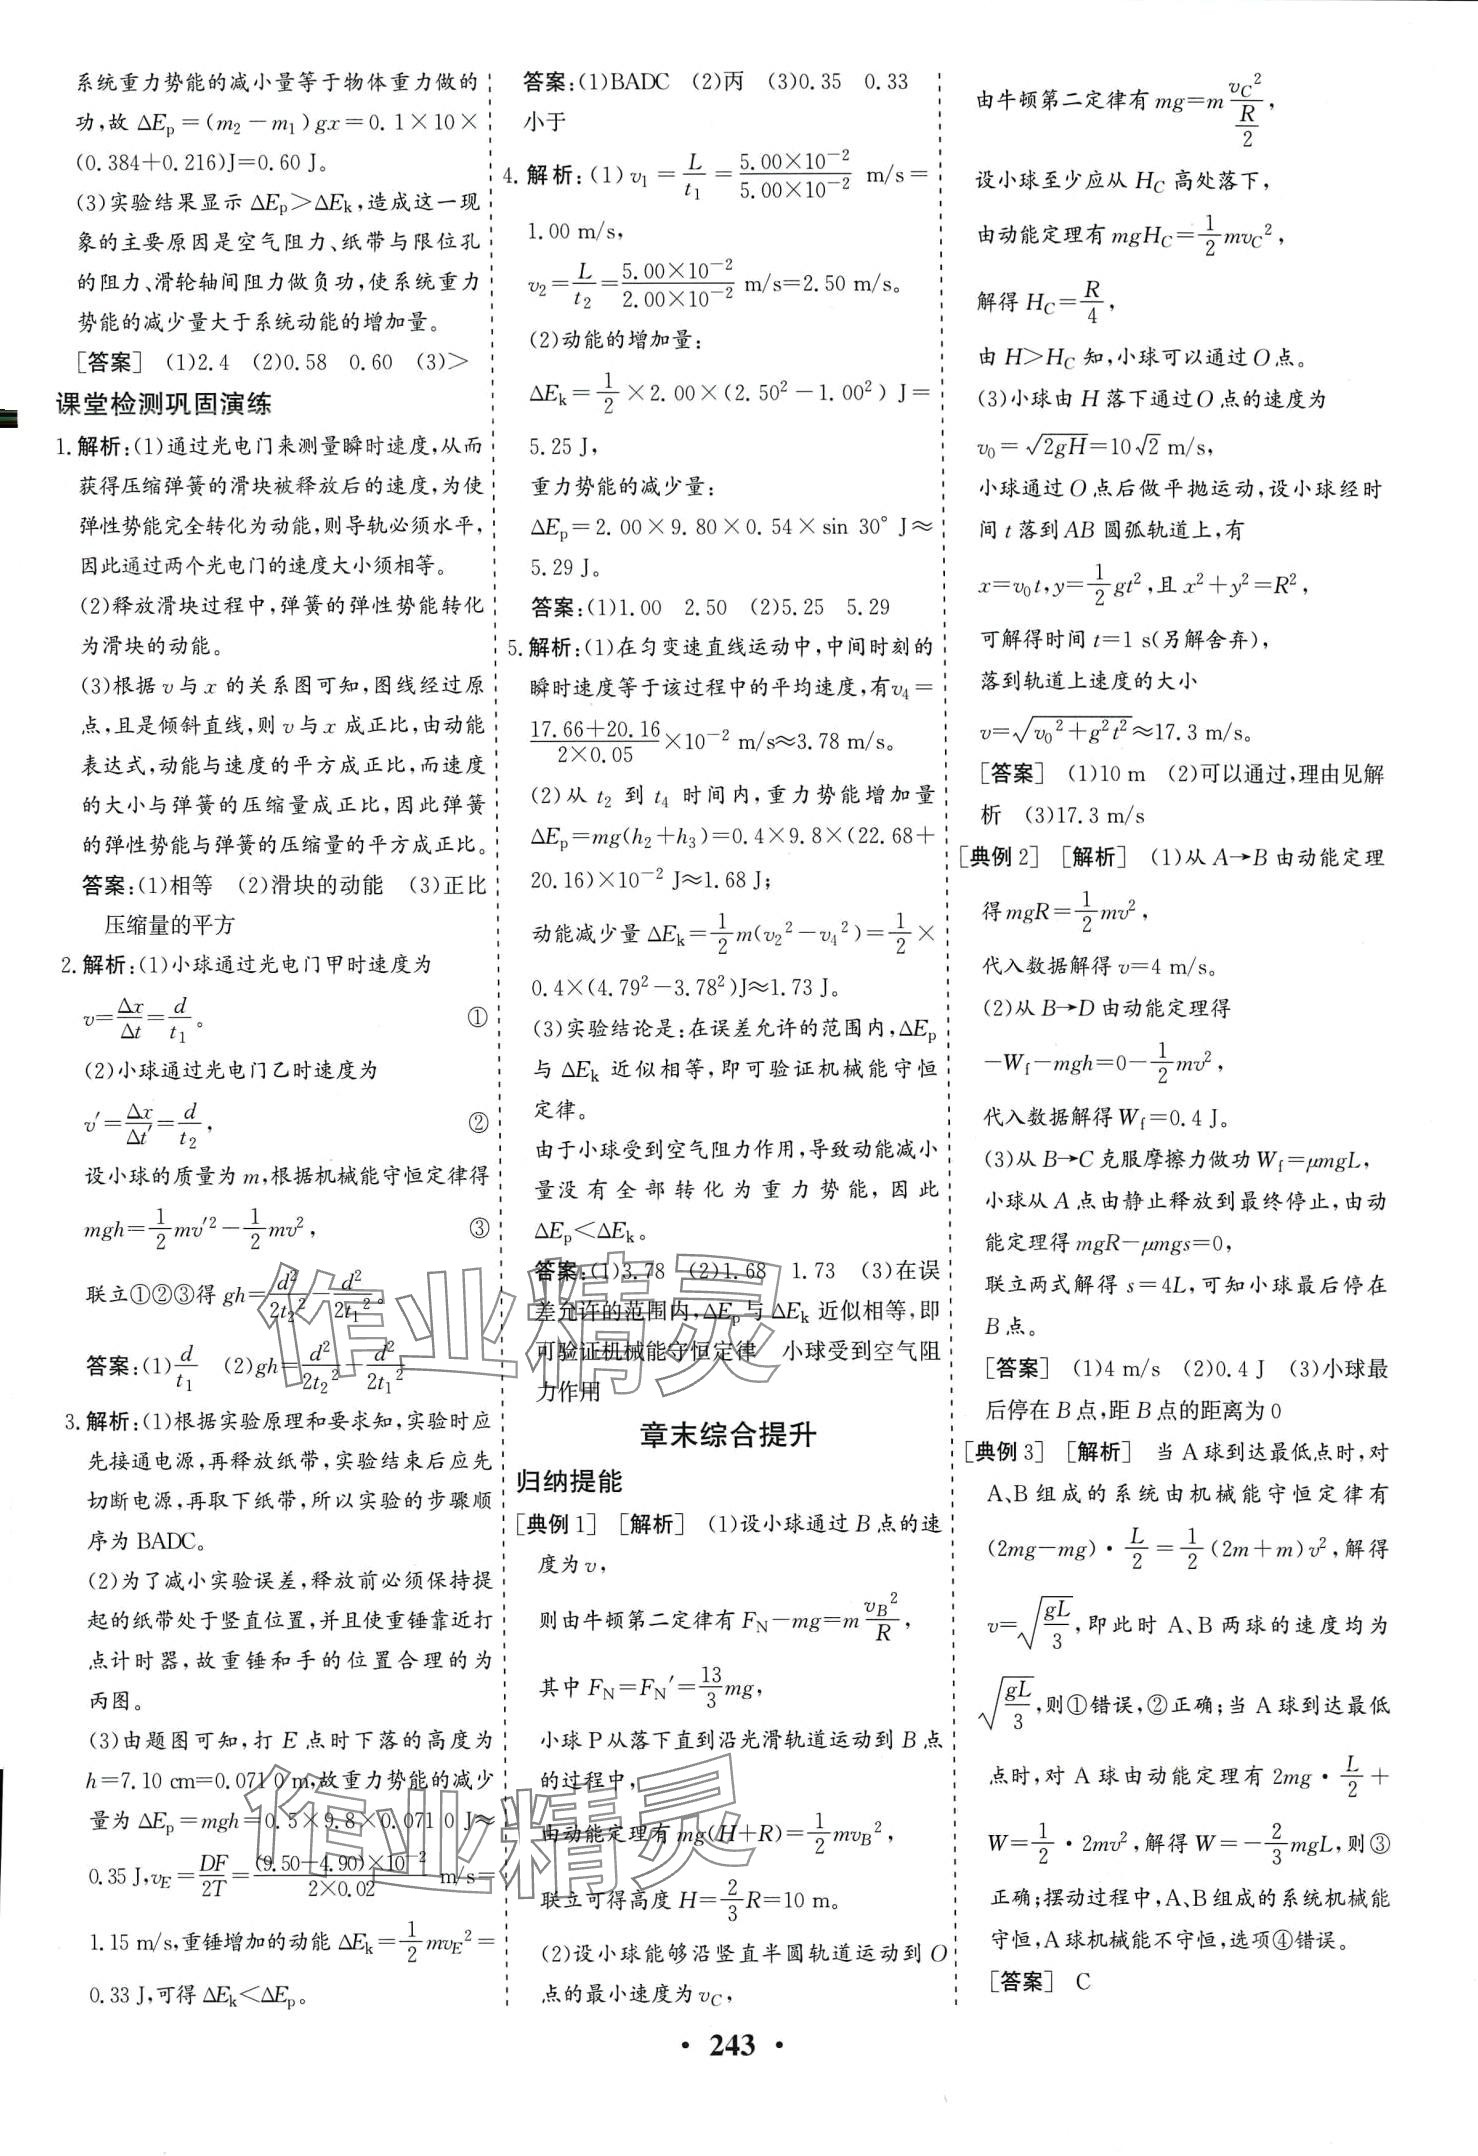 系统重力势能的减小量等于物体重力做的
功,故 ΔEp=(m₂-m₁)gx=0.1×10×
(0.384+0.216)J=0.60 J。
(3)实验结果显示 ΔEp>ΔEk,造成这一现
象的主要原因是空气阻力、纸带与限位孔
的阻力、滑轮轴间阻力做负功,使系统重力
势能的减少量大于系统动能的增加量。
[答案] (1)2.4 (2)0.58 0.60 (3)>
课堂检测巩固演练
1.解析:(1)通过光电门来测量瞬时速度,从而
获得压缩弹簧的滑块被释放后的速度,为使
弹性势能完全转化为动能,则导轨必须水平,
因此通过两个光电门的速度大小须相等。
(2)释放滑块过程中,弹簧的弹性势能转化
为滑块的动能。
(3)根据 v 与 x 的关系图可知,图线经过原
点,且是倾斜直线,则 v 与 x 成正比,由动能
表达式,动能与速度的平方成正比,而速度
的大小与弹簧的压缩量成正比,因此弹簧
的弹性势能与弹簧的压缩量的平方成正比。
答案:(1)相等 (2)滑块的动能 (3)正比
压缩量的平方
2.解析:(1)小球通过光电门甲时速度为
v=Δx/Δt=d/t₁。 ①
(2)小球通过光电门乙时速度为
v′=Δx/Δt′=d/t₂, ②
设小球的质量为 m,根据机械能守恒定律得
mgh=1/2 mv′²-1/2 mv², ③
联立①②③得 gh=d²/2t₂²-d²/2t₁²。
答案:(1)d/t₁ (2)gh=d²/2t₂²-d²/2t₁²
3.解析:(1)根据实验原理和要求知,实验时应
先接通电源,再释放纸带,实验结束后应先
切断电源,再取下纸带,所以实验的步骤顺
序为 BADC。
(2)为了减小实验误差,释放前必须保持提
起的纸带处于竖直位置,并且使重锤靠近打
点计时器,故重锤和手的位置合理的为
丙图。
(3)由题图可知,打 E 点时下落的高度为
h=7.10 cm=0.071 0 m,故重力势能的减少
量为 ΔEp=mgh=0.5×9.8×0.071 0 J≈
0.35 J,vE=DF/2T=(9.50-4.90)×10⁻²/2×0.02 m/s=
1.15 m/s,重锤增加的动能 ΔEk=1/2 mvE²=
0.33 J,可得 ΔEk<ΔEp。
答案:(1)BADC (2)丙 (3)0.35 0.33
小于
4.解析:(1)v₁=L/t₁=5.00×10⁻²/5.00×10⁻² m/s=
1.00 m/s,
v₂=L/t₂=5.00×10⁻²/2.00×10⁻² m/s=2.50 m/s。
(2)动能的增加量:
ΔEk=1/2×2.00×(2.50²-1.00²) J=
5.25 J,
重力势能的减少量:
ΔEp=2.00×9.80×0.54×sin 30° J≈
5.29 J。
答案:(1)1.00 2.50 (2)5.25 5.29
5.解析:(1)在匀变速直线运动中,中间时刻的
瞬时速度等于该过程中的平均速度,有v₄=
17.66+20.16/2×0.05×10⁻² m/s≈3.78 m/s。
(2)从 t₂ 到 t₄ 时间内,重力势能增加量
ΔEp=mg(h₂+h₃)=0.4×9.8×(22.68+
20.16)×10⁻² J≈1.68 J;
动能减少量 ΔEk=1/2 m(v₂²-v₄²)=1/2×
0.4×(4.79²-3.78²)J≈1.73 J。
(3)实验结论是:在误差允许的范围内,ΔEp
与 ΔEk 近似相等,即可验证机械能守恒
定律。
由于小球受到空气阻力作用,导致动能减小
量没有全部转化为重力势能,因此
ΔEp<ΔEk。
答案:(1)3.78 (2)1.68 1.73 (3)在误
差允许的范围内,ΔEp与 ΔEk 近似相等,即
可验证机械能守恒定律 小球受到空气阻
力作用
章末综合提升
归纳提能
[典例1] [解析] (1)设小球通过 B 点的速
度为 v,
则由牛顿第二定律有 FN-mg=m vB²/R,
其中 FN=FN′=13/3 mg,
小球 P 从落下直到沿光滑轨道运动到 B 点
的过程中,
由动能定理有 mg(H+R)=1/2 mvB²,
联立可得高度 H=2/3 R=10 m。
(2)设小球能够沿竖直半圆轨道运动到 O
点的最小速度为 vC,
由牛顿第二定律有 mg=m vC²/(R/2),
设小球至少应从 HC 高处落下,
由动能定理有 mgHC=1/2 mvC²,
解得 HC=R/4,
由 H>HC 知,小球可以通过 O 点。
(3)小球由 H 落下通过 O 点的速度为
v₀=√2gH=10√2 m/s,
小球通过 O 点后做平抛运动,设小球经时
间 t 落到 AB 圆弧轨道上,有
x=v₀t,y=1/2 gt²,且 x²+y²=R²,
可解得时间 t=1 s(另解舍弃),
落到轨道上速度的大小
v=√(v₀²+g²t²)≈17.3 m/s。
[答案] (1)10 m (2)可以通过,理由见解
析 (3)17.3 m/s
[典例2] [解析] (1)从 A→B 由动能定理
得 mgR=1/2 mv²,
代入数据解得 v=4 m/s。
(2)从 B→D 由动能定理得
-Wf-mgh=0-1/2 mv²,
代入数据解得 Wf=0.4 J。
(3)从 B→C 克服摩擦力做功 Wf=μmgL,
小球从 A 点由静止释放到最终停止,由动
能定理得 mgR-μmgs=0,
联立两式解得 s=4L,可知小球最后停在
B 点。
[答案] (1)4 m/s (2)0.4 J (3)小球最
后停在 B 点,距 B 点的距离为 0
[典例3] [解析] 当 A 球到达最低点时,对
A、B 组成的系统由机械能守恒定律有
(2mg-mg)·L/2=1/2(2m+m)v²,解得
v=√(gL/3),即此时 A、B 两球的速度均为
√(gL/3),则①错误,②正确;当 A 球到达最低
点时,对 A 球由动能定理有 2mg·L/2+
W=1/2·2mv²,解得 W=-2/3 mgL,则③
正确;摆动过程中,A、B 组成的系统机械能
守恒,A 球机械能不守恒,选项④错误。
[答案] C
作业精灵
作业精灵
· 243 ·